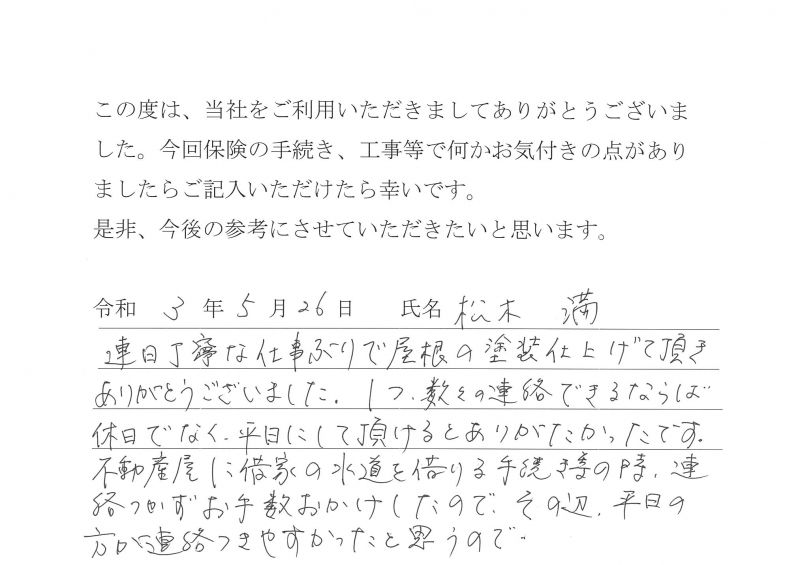 この度は、当社をご利用いただきましてありがとうございま
した。今回保険の手続き、工事等で何かお気付きの点があり
ましたらご記入いただけたら幸いです。
是非、今後の参考にさせていただきたいと思います。
令和 3 年 5 月 26 日 氏名 松木 満
連日丁寧な仕事ぶりで屋根の塗装仕上げて頂き
ありがとうございました。1つ、数々の連絡できるならば
休日でなく、平日にして頂けるとありがたかったです。
不動産屋に借家の水道を借りる手続き等の時、連
絡つかずお手数おかけしたので、その辺、平日の
方が連絡つきやすかったと思うので…